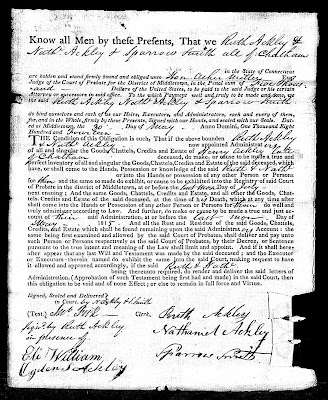 Know all Men by these Presents, That we Ruth Ackley &
Nathl. Ackley & Sparrow Smith all of Chatham
in the State of Connecticut
are holden and stand firmly bound and obliged unto Hon. Asher Miller
Judge of the Court of Probate for the District of Middletown, in the Penal sum of Two thous-
and Dollars of the United States, to be paid to the said Judge or his certain
Attorney or successors in said office. To the which Payment well and truly to be made and done, we
the said Ruth Ackley Nathl. Ackley & Sparrow Smith
do bind ourselves and each of us our Heirs, Executors, and Administrators, each and every of them,
for and in the Whole, firmly by these Presents, Signed with our Hands, and sealed with our Seals. Dat-
ed at Middletown, the 30 Day of May Anno Domini, One Thousand Eight
Hundred and
THE Condition of this Obligation is such, That if the above bounden Ruth Ackley
& Nathl. Ackley now appointed Administrators
of all and singular the Goods, Chattels, Credits and Estate of Henry Ackley late
of Chatham deceased, do make, or cause to be made a true and
perfect inventory of all and singular the Goods, Chattels, Credits and Estate of the said deceased, which
have, or shall come to the Hands, Possession or knowledge of the said Ruth & Nathl.
or into the Hands or possession of any other Person or Persons
for them and the same so made do exhibit or cause to be exhibited into the Registry of said Court
of Probate in the district of Middletown, at or before the last Mon. Day of July
next ensuing; And the same Goods, Chattels, Credits and Estate, and all other the Goods, Chat-
tels, Credits and Estate of the said deceased, at the time of his Death, which at any time after
shall come into the Hands or Possession of any other Person or Persons for them do well and
truly administer according to Law. And further, do make or cause to be made a true and just ac-
count of their said Administration, at or before the Day of
And all the Rest and Residue of the said Goods, Chattels,
Credits, and Estate which shall be found remaining upon the said Administrators Account; the
same being first examined and allowed by the said Court of Probate, shall deliver and pay unto
such Person or Persons respectively as the said Court of Probate, by their Decree, or Sentence
pursuant to the true intent and meaning of the Law shall limit and appoint. And if it shall here-
after appear that any last Will and Testament was made by the said deceased; and the Executor
or Executors therein named do exhibit the same into the said Court, making request to have
it allowed and approved accordingly, if the said Ruth & Nathl.
being thereunto required, do render and deliver the said letters of
Administration, (Approbation of such Testament being first had and made) in the said Court, then
this Obligation to be void and of none Effect; or else to remain in full Force and Virtue.
Signed, Sealed and Delivered
in Court. By N. Ackley & Smith
(Test.) Clerk.
Sign'd by Ruth Ackley
in presence of
Eli William
Ogden Ackley
Ruth Ackley
Nathaniel Ackley
Sparrow Smith